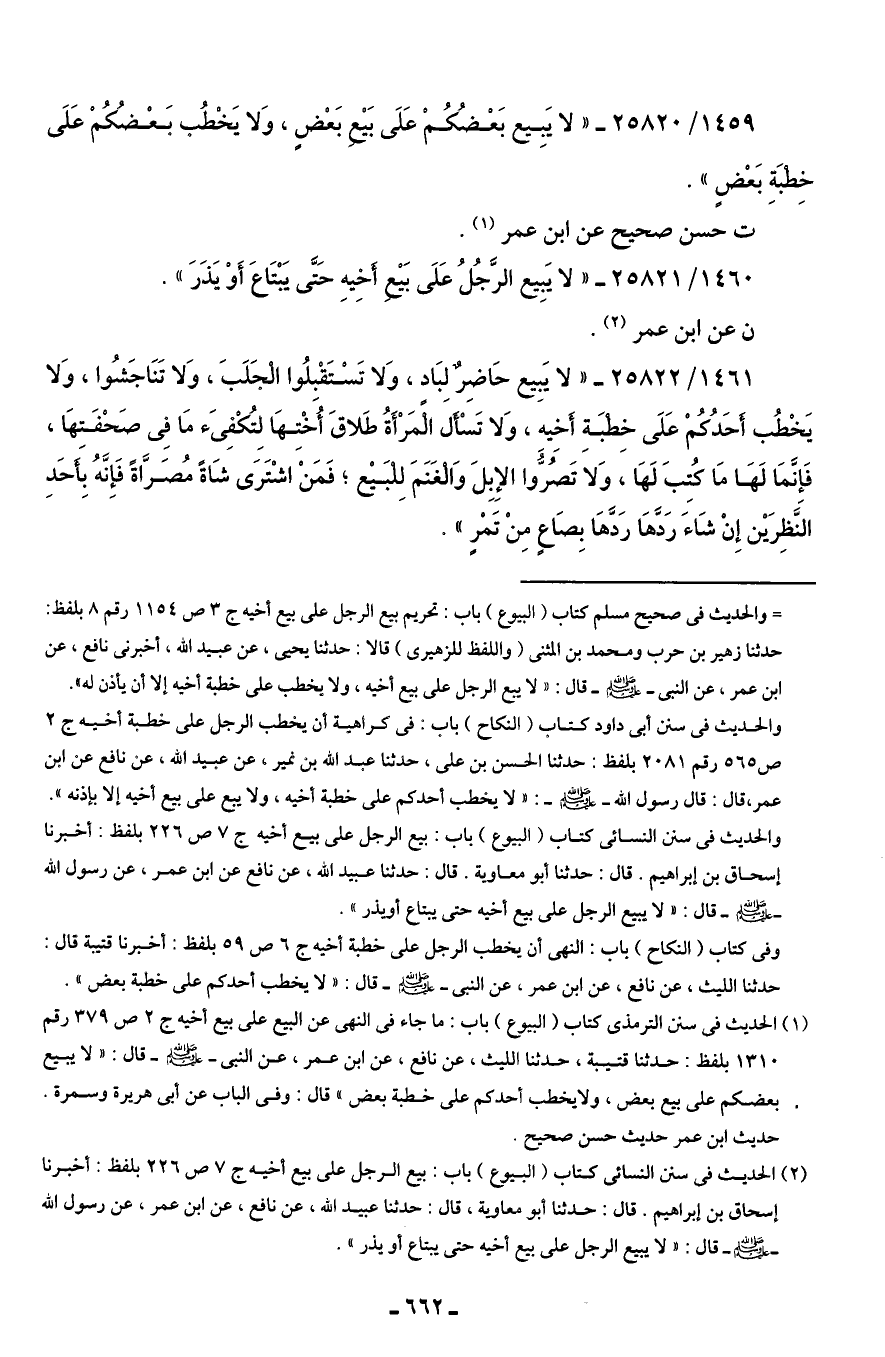 ١٤٥٩/ ٢٥٨٢٠ ـ « لا يَبِيع بَعْضُكُمْ عَلَى بَيْعِ بَعْضٍ ، وَلا يَخْطُب بَعْضُكُمْ عَلَى
خِطْبَةِ بَعْضٍ » .
ت حسن صحيح عن ابن عمر (١) .
١٤٦٠/ ٢٥٨٢١ ـ « لا يَبِيع الرَّجُلُ عَلَى بَيْعِ أَخِيهِ حَتَّى يَبْتَاعَ أَوْ يَذَرَ » .
ن عن ابن عمر (٢) .
١٤٦١/ ٢٥٨٢٢ ـ « لا يَبِيع حَاضِرٌ لِبَادٍ ، وَلا تَسْتَقْبِلُوا الْجَلَبَ ، وَلا تَنَاجَشُوا ، وَلا
يَخْطُب أَحَدُكُمْ عَلَى خِطْبَةِ أَخِيهِ ، وَلا تَسْأَل الْمَرْأَةُ طَلاقَ أُخْتِهَا لِتُكْفِىءَ مَا فِى صَحْفَتِهَا ،
فَإِنَّمَا لَهَا مَا كُتِبَ لَهَا ، وَلا تَصُرُّوا الإِبِلَ وَالْغَنَمَ لِلْبَيْعِ ؛ فَمَنْ اشْتَرَى شَاةً مُصَرَّاةً فَإِنَّهُ بِأَحَدِ
النَّظِرَيْن إِنْ شَاءَ رَدَّهَا رَدَّهَا بِصَاعٍ مِنْ تَمْرٍ » .
= والحديث فى صحيح مسلم كتاب ( البيوع ) باب : تحريم بيع الرجل على بيع أخيه ج ٣ ص ١١٥٤ رقم ٨ بلفظ :
حدثنا زهير بن حرب ومحمد بن المثنى ( واللفظ للزهيرى ) قالا : حدثنا يحيى ، عن عبيد الله ، أخبرنى نافع ، عن
ابن عمر ، عن النبى ـ ﷺ ـ قال : « لا يبع الرجل على بيع أخيه ، ولا يخطب على خطبة أخيه إلا أن يأذن له».
والحديث فى سنن أبى داود كتاب ( النكاح ) باب : فى كراهية أن يخطب الرجل على خطبة أخيه ج ٢
ص٥٦٥ رقم ٢٠٨١ بلفظ : حدثنا الحسن بن على ، حدثنا عبد الله بن نمير ، عن عبيد الله ، عن نافع عن ابن
عمر،قال : قال رسول الله ـ ﷺ ـ : « لا يخطب أحدكم على خطبة أخيه ، ولا يبع على بيع أخيه إلا بإذنه ».
والحديث فى سنن النسائى كتاب ( البيوع ) باب : بيع الرجل على بيع أخيه ج ٧ ص ٢٢٦ بلفظ : أخبرنا
إسحاق بن إبراهيم . قال : حدثنا أبو معاوية . قال : حدثنا عبيد الله ، عن نافع عن ابن عمر ، عن رسول الله
ـ ﷺ ـ قال : « لا يبيع الرجل على بيع أخيه حتى يبتاع أويذر » .
وفى كتاب ( النكاح ) باب : النهى أن يخطب الرجل على خطبة أخيه ج ٦ ص ٥٩ بلفظ : أخبرنا قتيبة قال :
حدثنا الليث ، عن نافع ، عن ابن عمر ، عن النبى ـ ﷺ ـ قال : « لا يخطب أحدكم على خطبة بعض » .
(١) الحديث فى سنن الترمذى كتاب ( البيوع ) باب : ما جاء فى النهى عن البيع على بيع أخيه ج ٢ ص ٣٧٩ رقم
١٣١٠ بلفظ : حدثنا قتيبة ، حدثنا الليث ، عن نافع ، عن ابن عمر ، عن النبى ـ ﷺ ـ قال : « لا يبيع
بعضكم على بيع بعض ، ولايخطب أحدكم على خطبة بعض » قال : وفى الباب عن أبى هريرة وسمرة .
حديث ابن عمر حديث حسن صحيح .
(٢) الحديث فى سنن النسائى كتاب ( البيوع ) باب : بيع الرجل على بيع أخيه ج ٧ ص ٢٢٦ بلفظ : أخبرنا
إسحاق بن إبراهيم . قال : حدثنا أبو معاوية ، قال : حدثنا عبيد الله ، عن نافع ، عن ابن عمر ، عن رسول الله
ـ ﷺ ـ قال : « لا يبيع الرجل على بيع أخيه حتى يبتاع أو يذر » .
ـ ٦٦٢ ـ